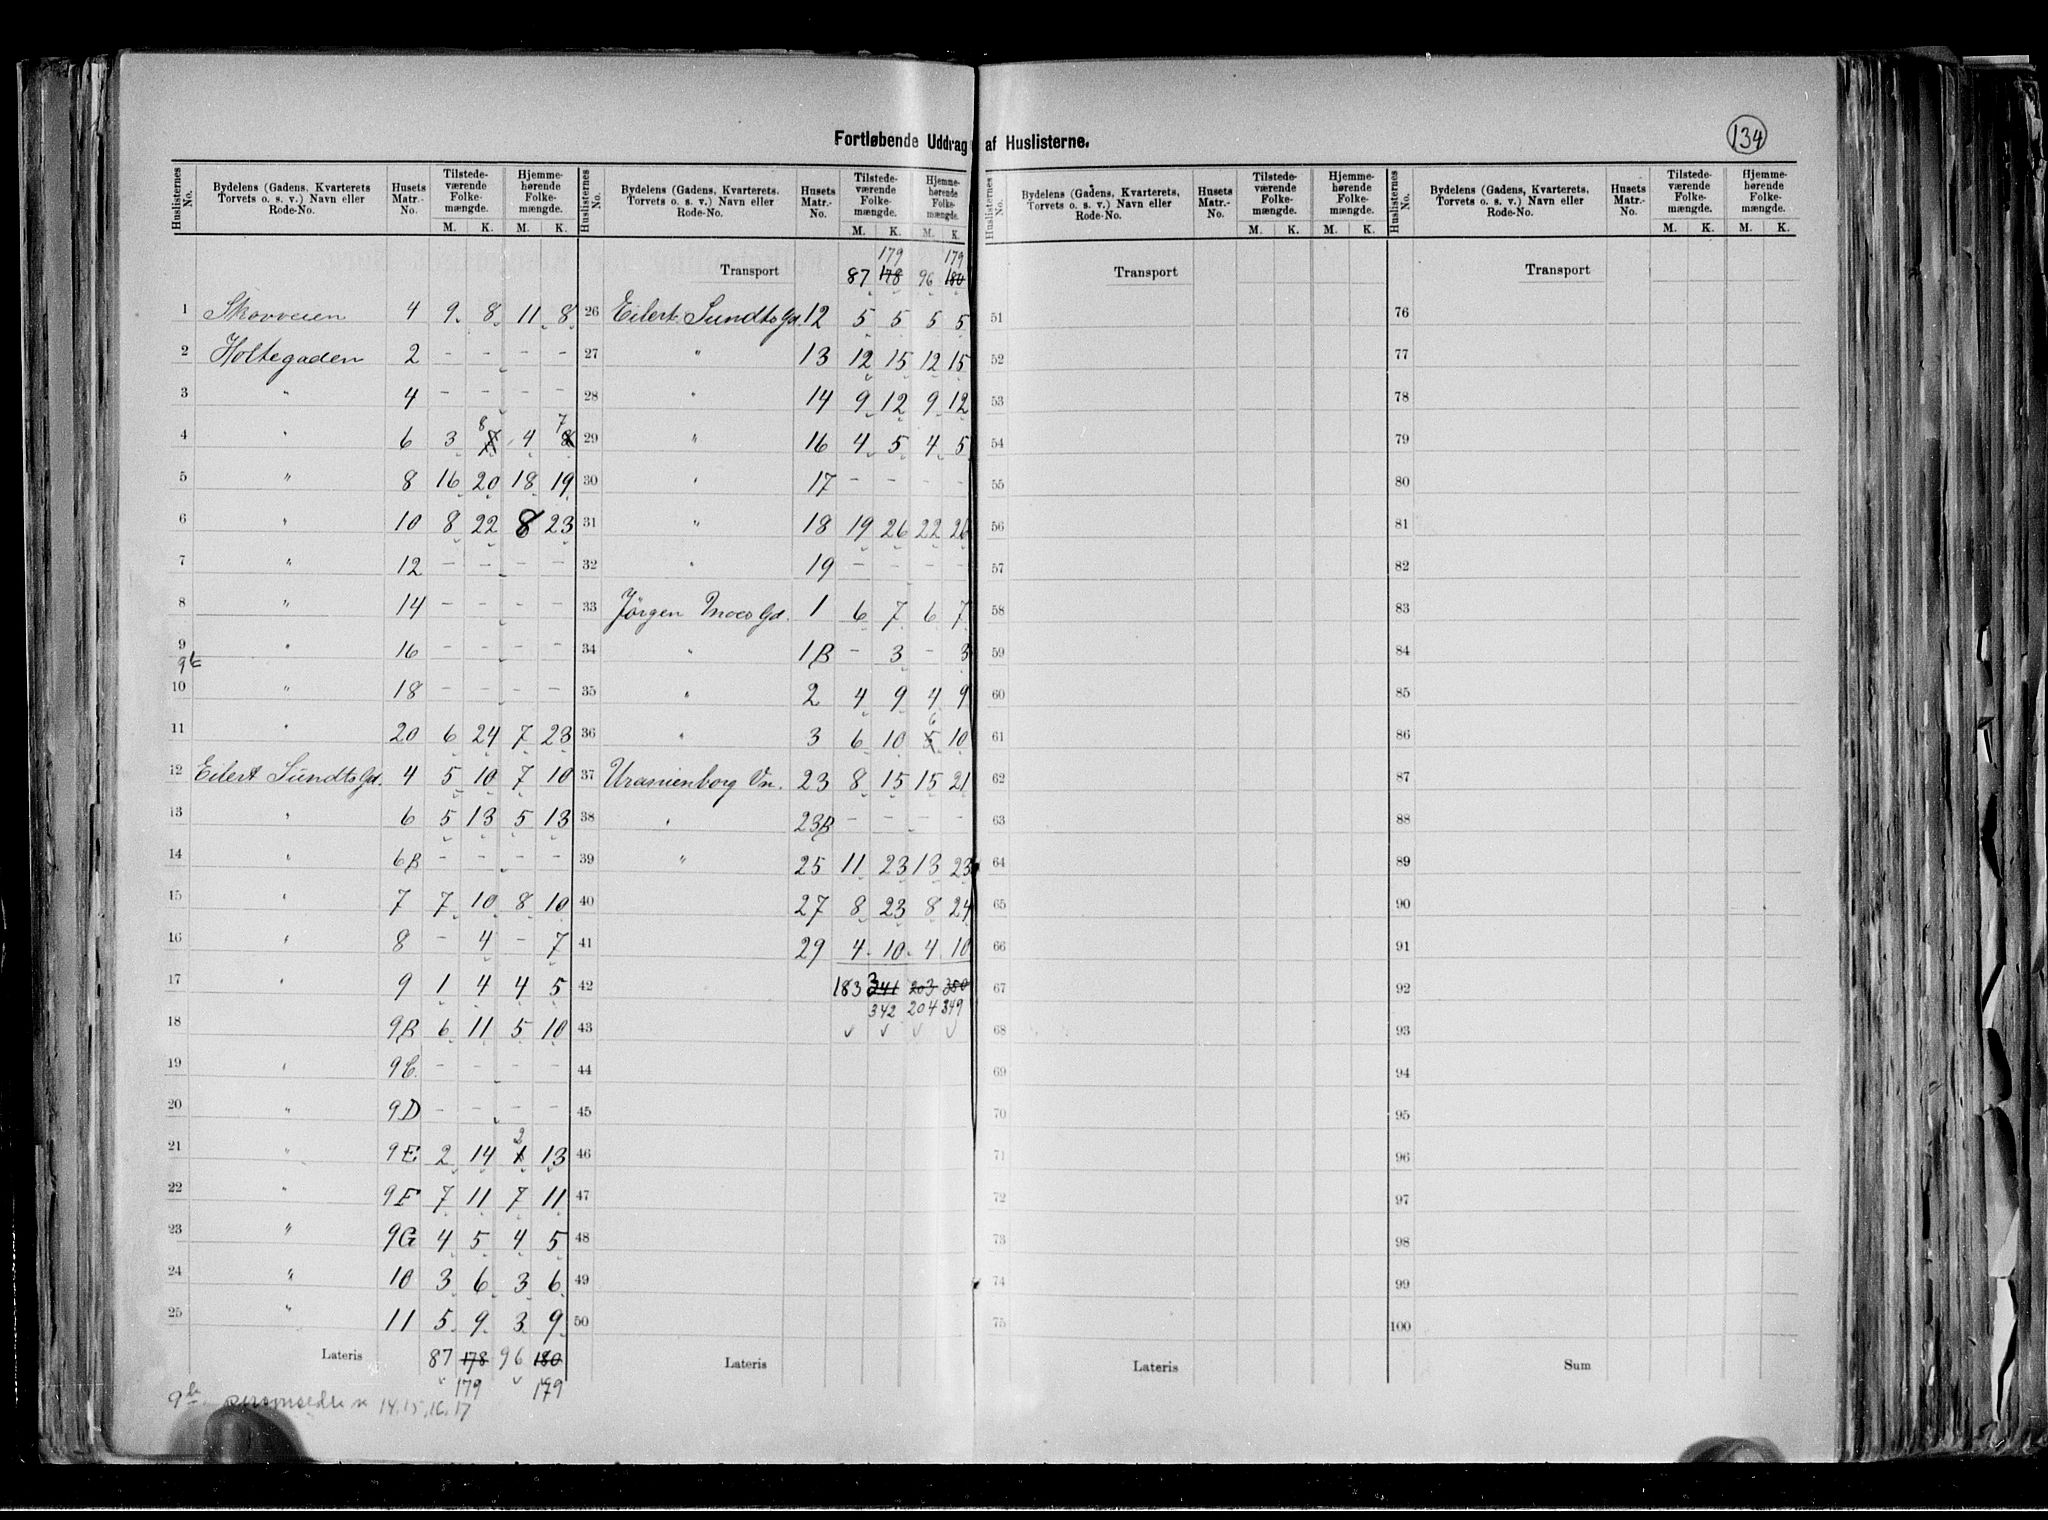 Fortløbende Uddrag af Huslisterne.
134
Huslisternes No. Bydelens (Gadens, Kvarterets Torvets o. s. v.) Navn eller Rode-No. Husets Matr.-No. Tilstedeværende Folkemængde. Hjemmehørende Folkemængde.
M. K. M. K.
1 Skovveien 4 9 8 11 8
2 Holtegaden 2 - - - -
3 " 4 - - - -
4 " 6 3 7 8 4 8 7
5 " 8 16 20 18 19
6 " 10 8 22 8 23
7 " 12 - - - -
8 " 14 - - - -
9 " 16 - - - -
9b
10 " 18 - - - -
11 " 20 6 24 7 23
12 Eilert Sundts Gd. 4 5 10 7 10
13 " 6 5 13 5 13
14 " 6B - - - -
15 " 7 7 10 8 10
16 " 8 - 4 - 7
17 " 9 1 4 4 5
18 9B 6 11 5 10
19 " 9C. - - - -
20 " 9D - - - -
21 " 9E 2 14 1 2 13
22 " 9F 7 11 7 11
23 " 9G 4 5 4 5
24 " 10 3 6 3 6
25 " 11 5 9 3 9
Lateris 87 178 96 180
179 179
9b personsedler 14, 15, 16, 17
Huslisternes No. Bydelens (Gadens, Kvarterets. Torvets o. s. v.) Navn eller Rode-No. Husets Matr.-No. Tilstedeværende Folkemængde. Hjemmehørende Folkemængde.
M. K. M. K.
179 179
Transport 87 178 96 180
26 Eilert Sundts Gd. 12 5 5 5 5
27 " 13 12 15 12 15
28 " 14 9 12 9 12
29 " 16 4 5 4 5
30 " 17 - - - -
31 " 18 19 26 22 26
32 " 19 - - - -
33 Jörgen Moes Gd. 1 6 7 6 7
34 " 1B - 3 - 3
35 " 2 4 9 4 9
36 " 3 6 10 5 6 10
37 Uranienborg Vn. 23 8 15 15 21
38 " 23B - - - -
39 " 25 11 23 13 23
40 27 8 23 8 24
41 29 4 10 4 10
42 183 341 203 350
342 204 349
43
44
45
46
47
48
49
50
Lateris
Huslisternes No. Bydelens (Gadens, Kvarterets, Torvets o. s. v.) Navn eller Rode-No. Husets Matr.-No. Tilstedeværende Folkemængde. Hjemmehørende Folkemængde.
M. K. M. K.
Transport
51
52
53
54
55
56
57
58
59
60
61
62
63
64
65
66
67
68
69
70
71
72
73
74
75
Lateris
Huslisternes No. Bydelens (Gadens, Kvarterets, Torvets o. s. v.) Navn eller Rode-No. Husets Matr.-No. Tilstedeværende Folkemængde. Hjemmehørende Folkemængde.
M. K. M. K.
Transport
76
77
78
79
80
81
82
83
84
85
86
87
88
89
90
91
92
93
94
95
96
97
98
99
100
Sum